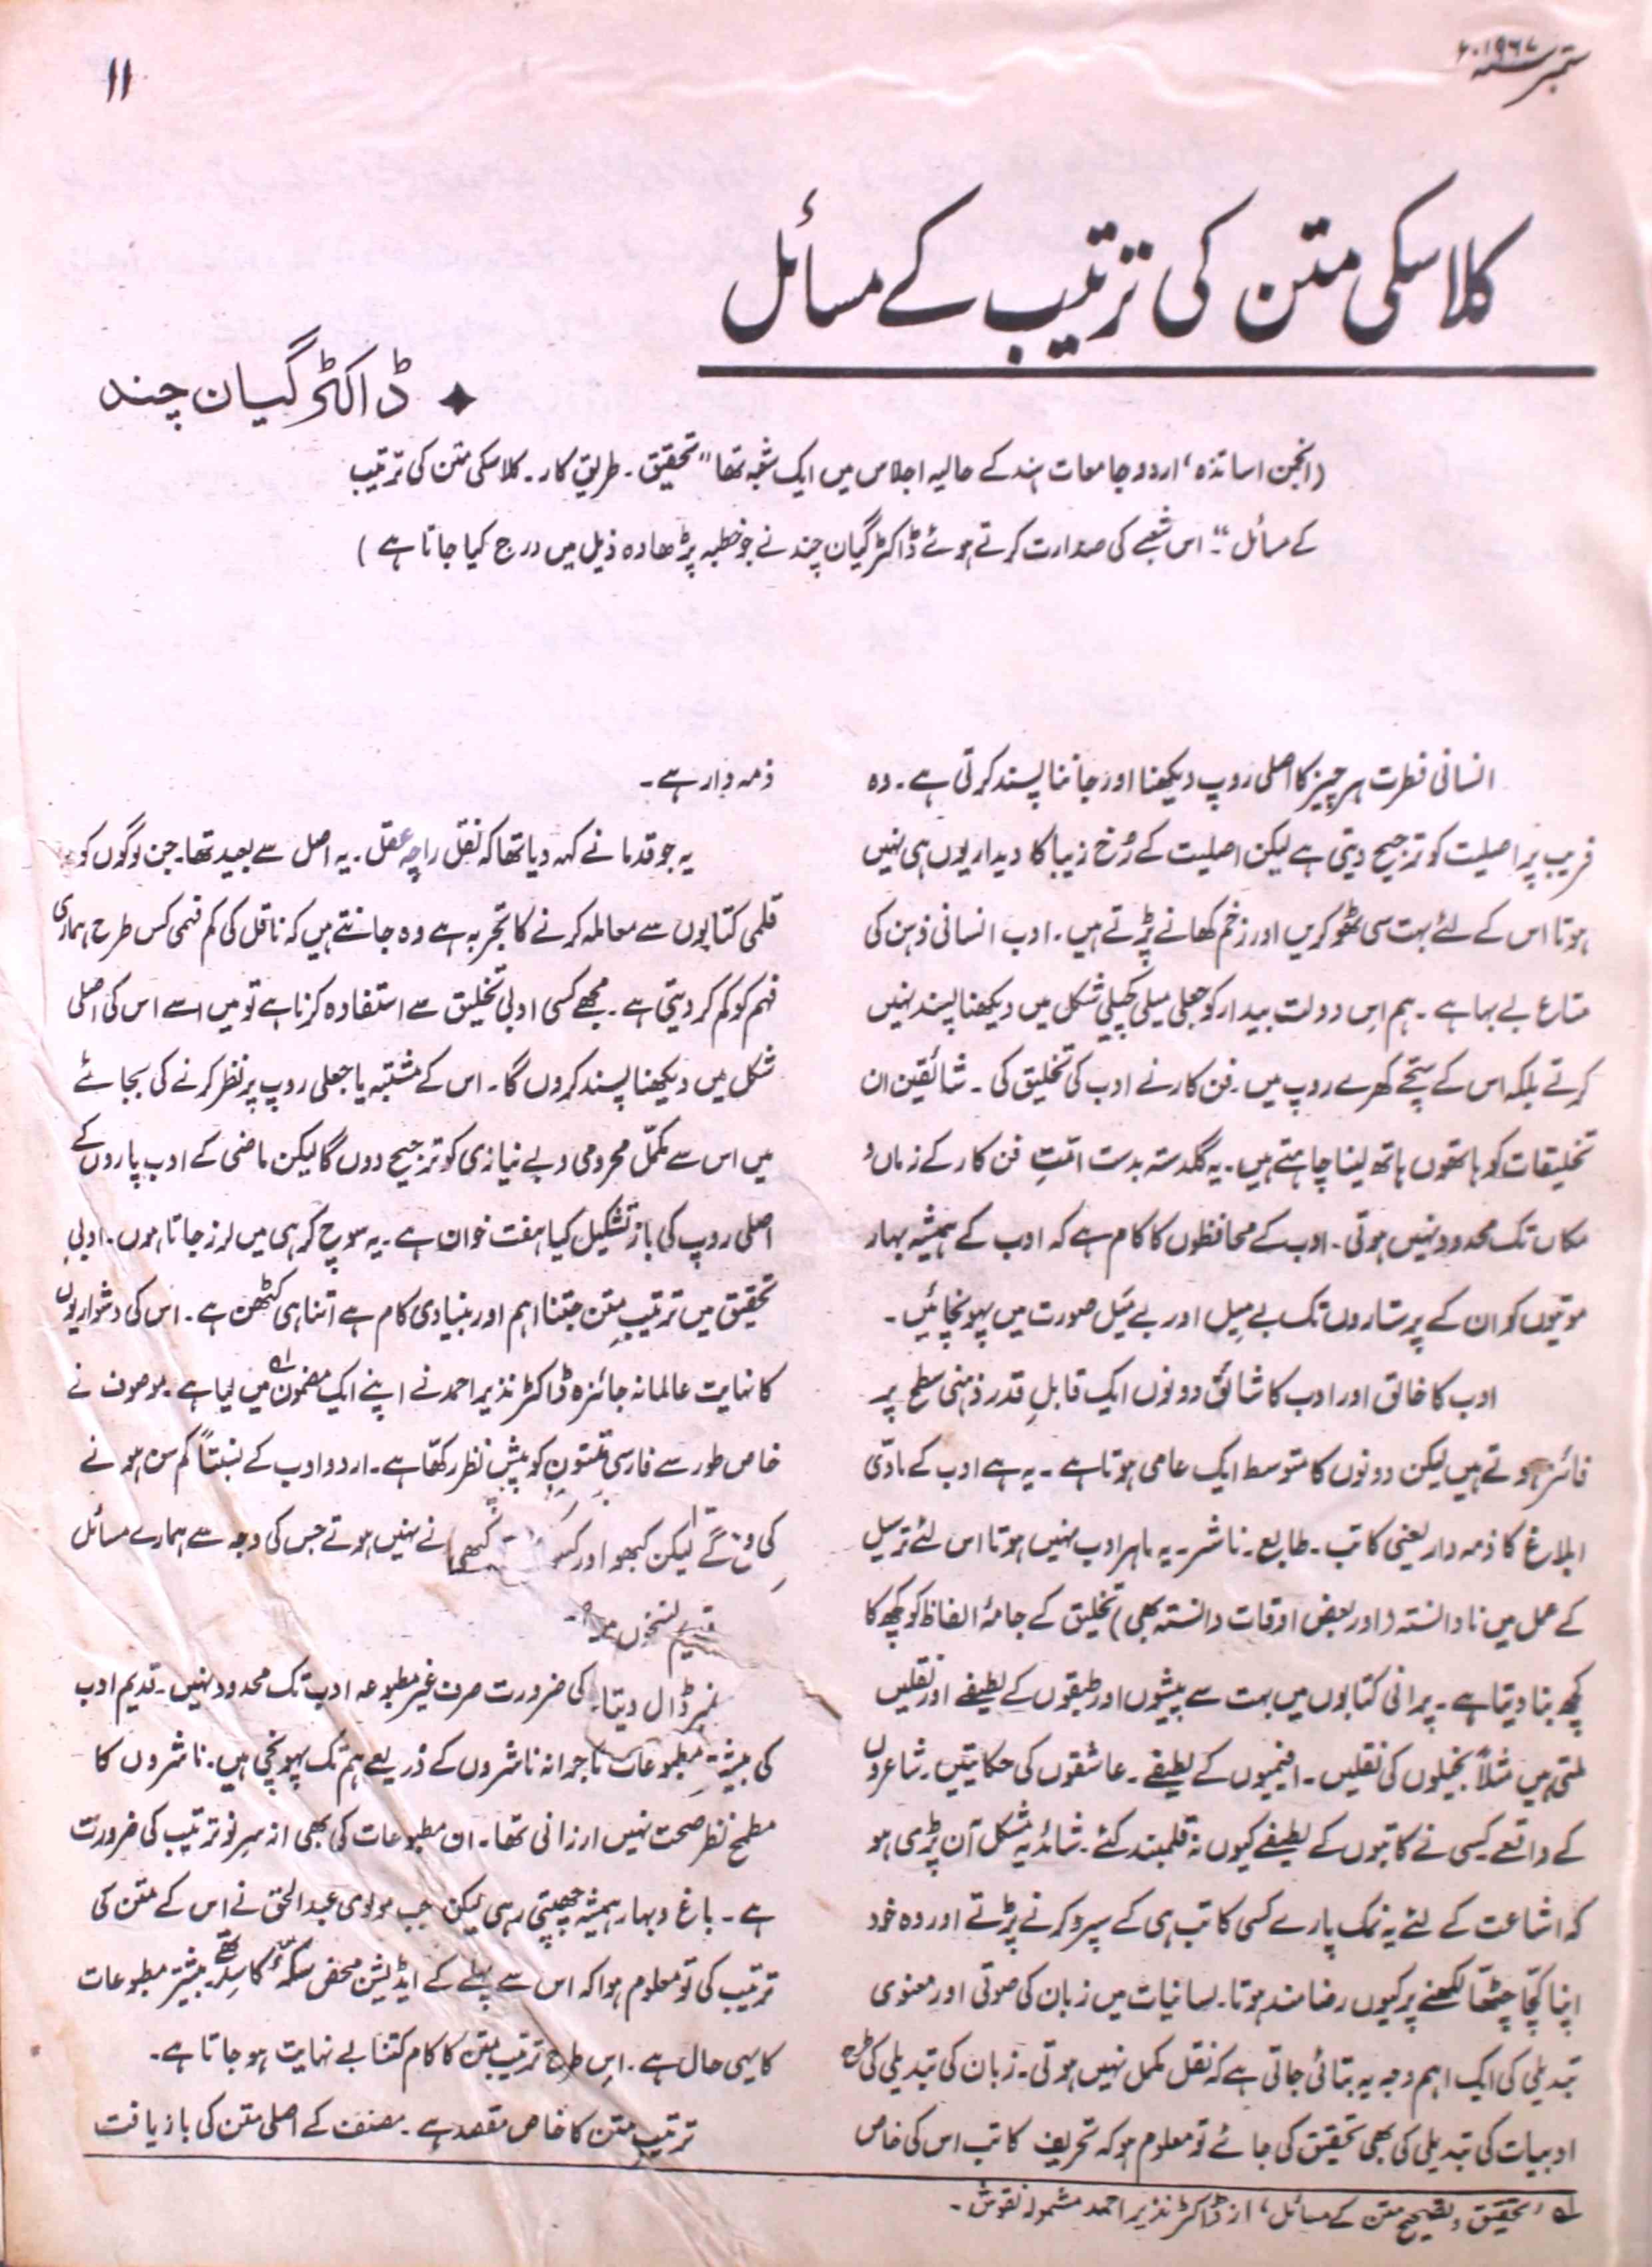 ستمبر سنہ ۱۹۶۷ء
۱۱
کلاسکی متن کی ترتیب کے مسائل
ڈاکٹر گیان چند
(انجمن اساتذہ، اردو جامعات ہند کے حالیہ اجلاس میں ایک شعبہ تھا "تحقیق۔ طریق کار۔ کلاسکی متن کی ترتیب
کے مسائل"۔ اس شعبے کی صدارت کرتے ہوئے ڈاکٹر گیان چند نے جو خطبہ پڑھا وہ ذیل میں درج کیا جاتا ہے)
انسانی فطرت ہر چیز کا اصلی روپ دیکھنا اور جاننا پسند کرتی ہے۔ وہ
فریب پر اصلیت کو ترجیح دیتی ہے لیکن اصلیت کے رُخ زیبا کا دیدار یوں ہی نہیں
ہوتا اس کے لئے بہت سی ٹھوکریں اور زخم کھانے پڑتے ہیں۔ ادب انسانی ذہن کی
متاع بے بہا ہے۔ ہم اِس دولت بیدار کو جعلی میلی کچیلی شکل میں دیکھنا پسند نہیں
کرتے بلکہ اس کے سچّے کھرے روپ میں۔ فن کار نے ادب کی تخلیق کی۔ شائقین ان
تخلیقات کو ہاتھوں ہاتھ لینا چاہتے ہیں۔ یہ گلدستہ بدست امّتِ فن کار کے زماں و
مکاں تک محدود نہیں ہوتی۔ ادب کے محافظوں کا کام ہے کہ ادب کے ہمیشہ بہار
موتیوں کو ان کے پرستاروں تک بے میل اور بے مَیل صورت میں پہونچائیں۔
ادب کا خالق اور ادب کا شائق دونوں ایک قابلِ قدر ذہنی سطح پر
فائز ہوتے ہیں لیکن دونوں کا متوسط ایک عامی ہوتا ہے۔ یہ ہے ادب کے مادّی
ابلاغ کا ذمہ دار یعنی کاتب۔ طابع۔ ناشر۔ یہ ماہر ادب نہیں ہوتا اس لئے ترسیل
کے عمل میں نادانستہ (اور بعض اوقات دانستہ بھی) تخلیق کے جامۂ الفاظ کو کچھ کا
کچھ بنا دیتا ہے۔ پرانی کتابوں میں بہت سے پیشوں اور طبقوں کے لطیفے اور نقلیں
ملتی ہیں مثلاً بخیلوں کی نقلیں۔ افیمیوں کے لطیفے۔ عاشقوں کی حکایتیں۔ شاعروں
کے واقعے کسی نے کاتبوں کے لطیفے کیوں نہ قلمبند کئے۔ شائد یہ مشکل آن پڑی ہو
کہ اشاعت کے لئے یہ نمک پارے کسی کاتب ہی کے سپرد کرنے پڑتے اور وہ خود
اپنا کچّا چٹھا لکھنے پر کیوں رضامند ہوتا۔ لسانیات میں زبان کی صوتی اور معنوی
تبدیلی کی ایک اہم وجہ یہ بتائی جاتی ہے کہ نقل مکمل نہیں ہوتی۔ زبان کی تبدیلی کی طرح
ادبیات کی تبدیلی کی بھی تحقیق کی جائے تو معلوم ہو کہ تحریف کاتب اس کی خاص
ذمہ دار ہے۔
یہ جو قدما نے کہہ دیا تھا کہ نقل راچہ عقل۔ یہ اصل سے بعید تھا۔ جن لوگوں کو
قلمی کتابوں سے معاملہ کرنے کا تجربہ ہے وہ جانتے ہیں کہ ناقل کی کم فہمی کس طرح ہماری
فہم کو کم کر دیتی ہے۔ مجھے کسی ادبی تخلیق سے استفادہ کرنا ہے تو میں اسے اس کی اصلی
شکل میں دیکھنا پسند کروں گا۔ اس کے مشتبہ یا جعلی روپ پر نظر کرنے کی بجائے
میں اس سے مکمل محرومی و بے نیازی کو ترجیح دوں گا لیکن ماضی کے ادب پاروں کے
اصلی روپ کی باز تشکیل کیا ہفت خوان ہے۔ یہ سوچ کر ہی میں لرز جاتا ہوں۔ ادبی
تحقیق میں ترتیبِ متن جتنا اہم اور بنیادی کام ہے اتنا ہی کٹھن ہے۔ اس کی دشواریوں
کا نہایت عالمانہ جائزہ ڈاکٹر نذیر احمد نے اپنے ایک مضمون ؎۱ میں لیا ہے۔ موصوف نے
خاص طور سے فارسی متون کو پیشِ نظر رکھا ہے۔ اردو ادب کے نسبتاً کم سن ہونے
کی لیکن کبھو اور نے نہیں ہوتے جس کی وجہ سے ہمارے مسائل
نسخوں
ڈال دیتا کی ضرورت صرف غیر مطبوعہ ادب تک محدود نہیں۔ قدیم ادب
کی بیشتر مطبوعات تاجرانہ ناشروں کے ذریعے ہم تک پہونچی ہیں۔ ناشروں کا
مطمح نظر صحت نہیں ارزانی تھا۔ ان مطبوعات کی بھی از سرِ نو ترتیب کی ضرورت
ہے۔ باغ و بہار ہمیشہ چھپتی رہی لیکن جب مولوی عبدالحق نے اس کے متن کی
ترتیب کی تو معلوم ہوا کہ اس سے پہلے کے ایڈیشن محض تھے۔ بیشتر مطبوعات
کا یہی حال ہے۔ اس طرح ترتیب متن کا کام کتنا بے نہایت ہو جاتا ہے۔
ترتیبِ متن کا خاص مقصد ہے۔ مصنف کے اصلی متن کی بازیافت
؎۱ 'تحقیق و تصحیح متن کے مسائل' از ڈاکٹر نذیر احمد مشمولہ نقوش۔